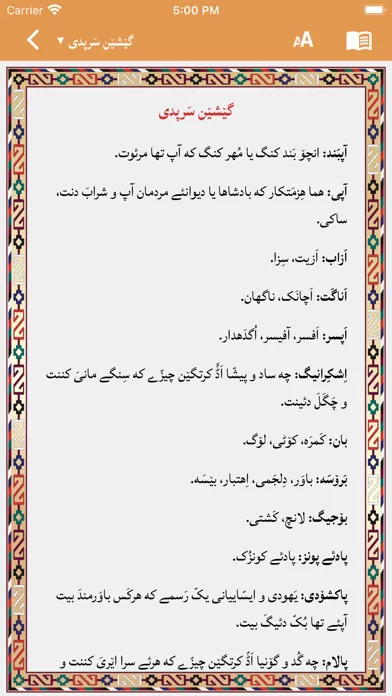 Carrier 5:00 PM
گێشێن سَرپدی ▼
AA
گێشێن سَرپدی
آپبَند: انچۆ بَند کنگ یا مُهر کنگ که آپ تها مرئوت.
آپی: هما هِزمَتکار که بادشاها یا دیوانئے مردمان آپ و شرابَ دنت،
ساکی.
اَزاب: اَزیت، سِزا.
اَناگَت: اَچانَک، ناگهان.
اَپسر: اَفسر، آفیسر، اُگدَهدار.
اِشکِرانیگ: چه ساد و پیشّا اَڈّ کرتگێن چیزّے که سِنگے مانیَ کننت
و چَگلَ دئینت.
بان: کَمرَه، کۆٹی، لۆگ.
بَرۆسَه: باوَر، دِلجَمی، اِهتبار، بێسَه.
بۆجیگ: لانچ، کَشتی.
پادئے پونز: پادئے کونزُک.
پاکشۆدی: یَهودی و ایسّاییانی یکّ رَسمے که هرکَس باوَرمندَ بیت
آپئے تها بُکّ دئیگَ بیت.
پالام: چه گُد و گۆنیا اَڈّ کرتگێن چیزّے که هرئے سرا اێریَ کننت و